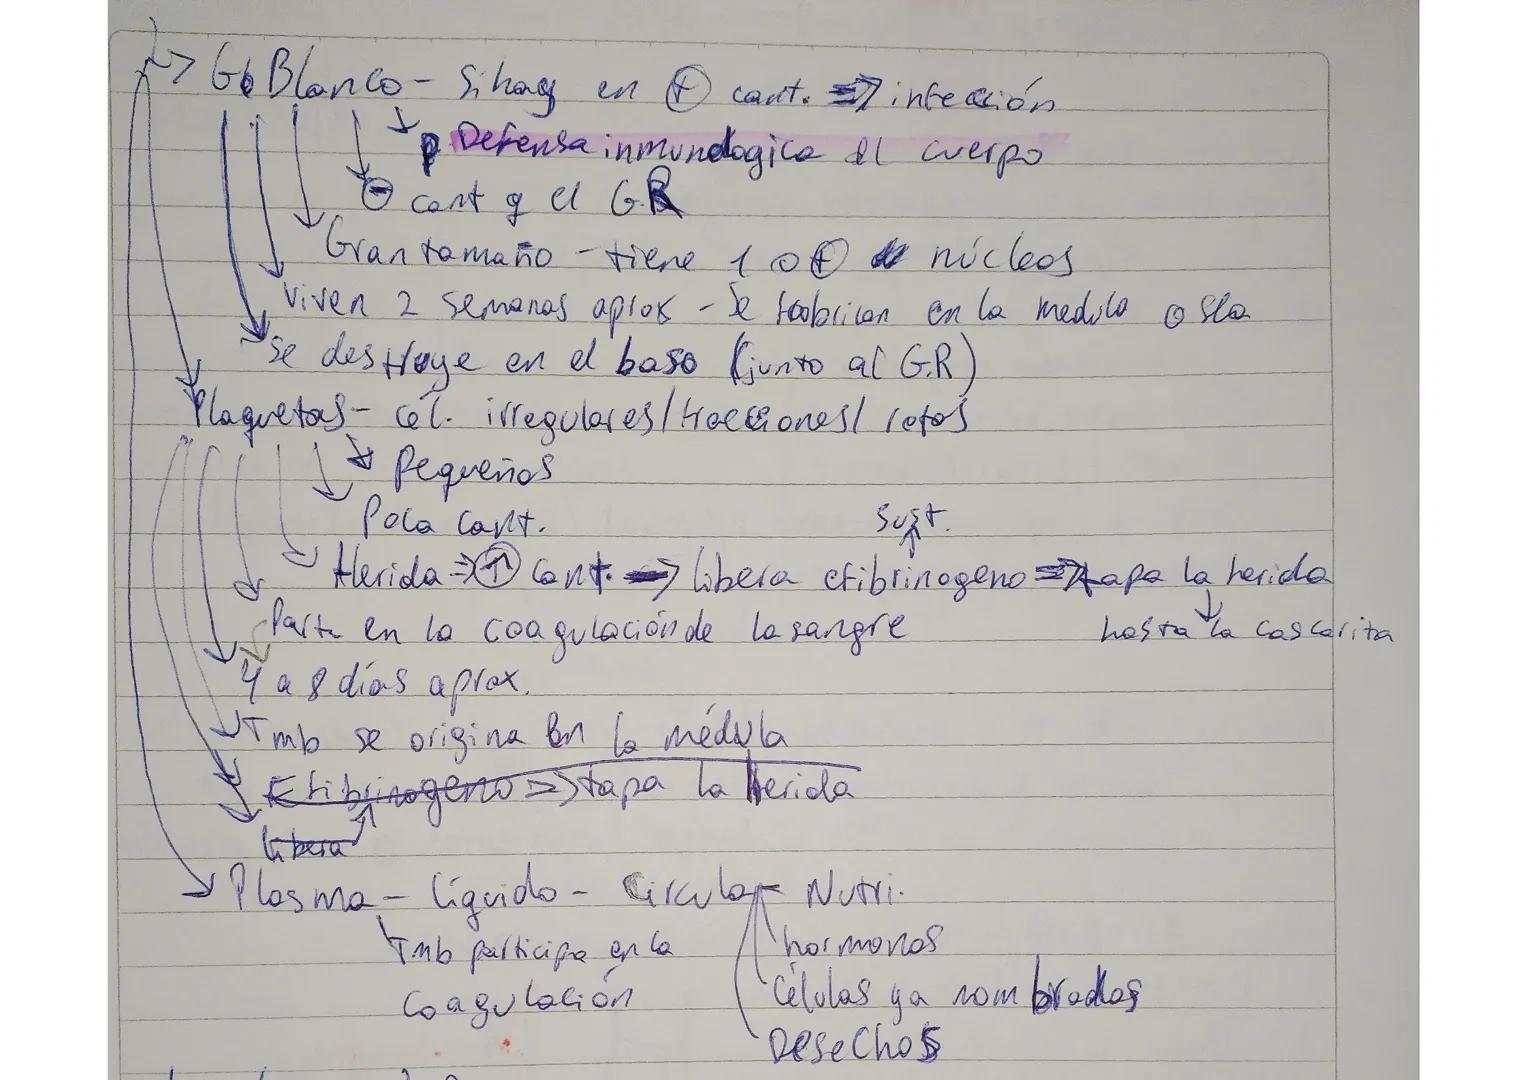 G. Blanco - Si hay en ⊕ cant. ⇒ infección
Defensa inmunologica del cuerpo
⊖ cant q el G.R
Gran tamaño - tiene 1 o ⊕ núcleos
Viven 2 semanas aprox - Se fabrican en la medula osea
Se destruye en el baso (junto al G.R)
Plaquetas - cél. irregulares/fracciones/rotas
Pequeñas
Poca cant.
Sust.
Herida ⇒ ↑ cant. → libera efibrinogeno ⇒ tapa la herida
Parte en la coagulación de la sangre
hasta la cascarita
4 a 8 días aprox.
Tmb se origina en la médula
Efibrinogeno ⇒ tapa la herida
libera
Plasma - líquido - Circula - Nutri.
Tmb participa en la
hormonas
coagulación
Células ya nombradas
Desechos